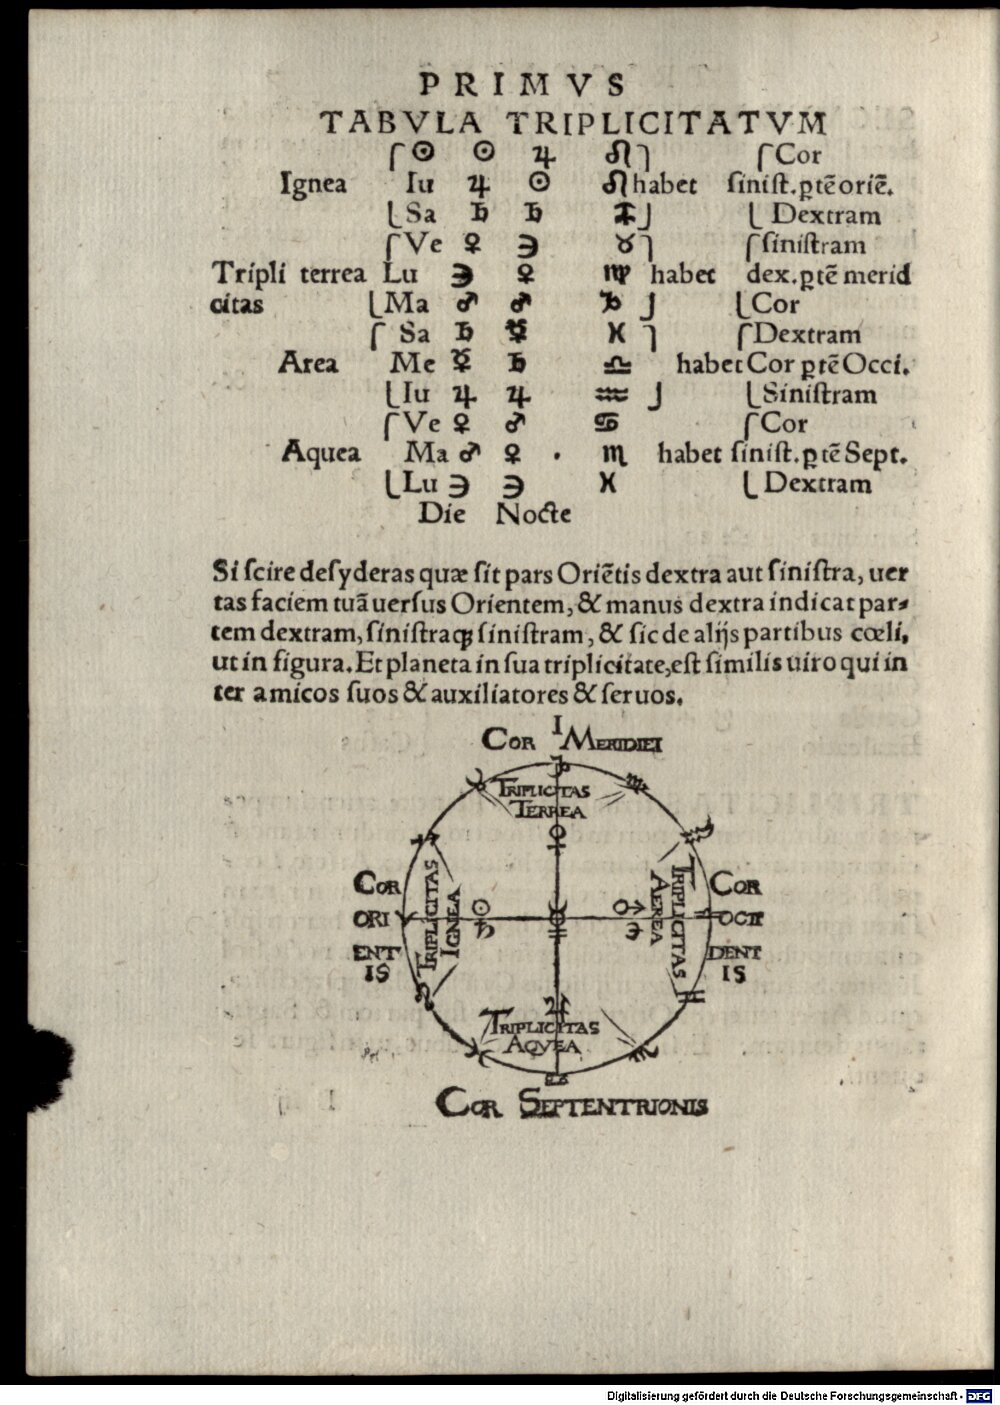 PRIMVS
TABVLA TRIPLICITATVM
⎧☉ ☉ ♃ ♌⎫ ⎧Cor
Ignea Iu ♃ ☉ ♌ habet sinist. ꝑtē oriē.
⎩Sa ♄ ♄ ♐⎭ ⎩Dextram
⎧Ve ♀ ☽ ♉⎫ ⎧sinistram
Tripli terrea Lu ☽ ♀ ♍ habet dex. ꝑtē merid
citas ⎩Ma ♂ ♂ ♑⎭ ⎩Cor
⎧Sa ♄ ☿ ♓⎫ ⎧Dextram
Area Me ☿ ♄ ♎ habet Cor ꝑtē Occi.
⎩Iu ♃ ♃ ♒⎭ ⎩Sinistram
⎧Ve ♀ ♂ ♋ ⎧Cor
Aquea Ma ♂ ♀ . ♏ habet sinist. ꝑtē Sept.
⎩Lu ☽ ☽ ♓ ⎩Dextram
Die Nocte
Si scire desyderas quæ sit pars Oriētis dextra aut sinistra, uer
tas faciem tuā uersus Orientem, & manus dextra indicat par⸗
tem dextram, sinistraꝙ sinistram, & sic de alijs partibus cœli,
ut in figura. Et planeta in sua triplicitate, est similis uiro qui in
ter amicos suos & auxiliatores & seruos.
COR I MERIDIEI
TRIPLICITAS
TERREA
♀
COR
ORI
ENT
IS
TRIPLICITAS
IGNEA
☉
♄
♂
☽
TRIPLICITAS
AEREA
COR
OCII
DENT
IS
♃
TRIPLICITAS
AQVEA
COR SEPTENTRIONIS
Digitalisierung gefördert durch die Deutsche Forschungsgemeinschaft - DFG